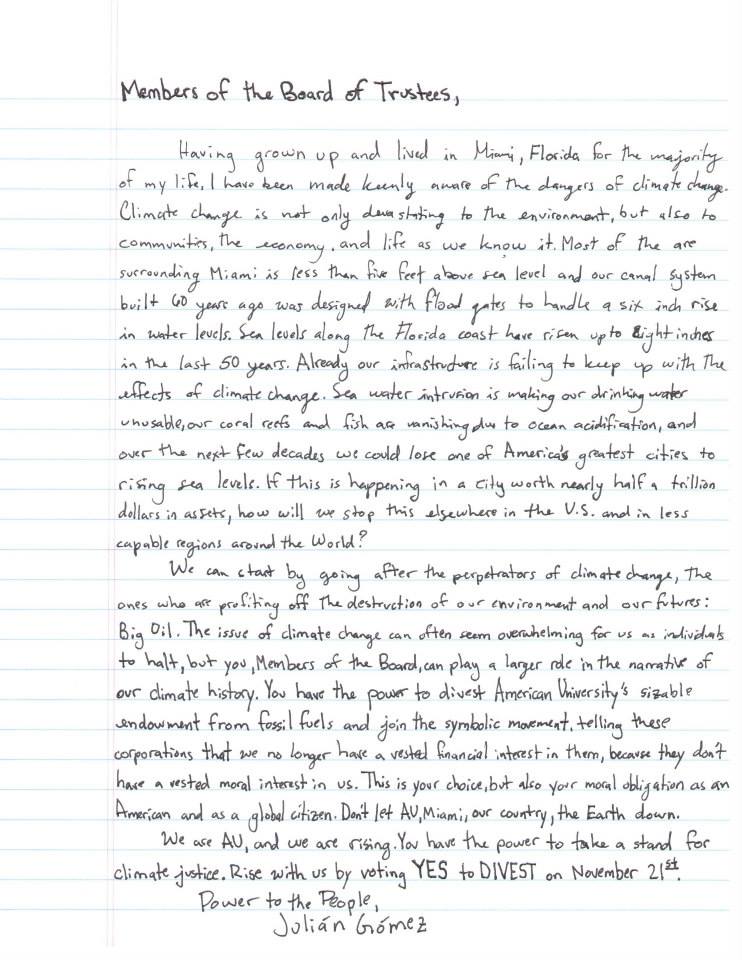 Members of the Board of Trustees,
Having grown up and lived in Miami, Florida for the majority
of my life, I have been made keenly aware of the dangers of climate change.
Climate change is not only devastating to the environment, but also to
communities, the economy, and life as we know it. Most of the are
surrounding Miami is less than five feet above sea level and our canal system
built 60 years ago was designed with flood gates to handle a six inch rise
in water levels. Sea levels along the Florida coast have risen upto eight inches
in the last 50 years. Already our infrastructure is failing to keep up with The
effects of climate change. Sea water intrusion is making our drinking water
unusable, our coral reefs and fish are vanishing due to ocean acidification, and
over the next few decades we could lose one of America's greatest cities to
rising sea levels. If this is happening in a city worth nearly half a trillion
dollars in assets, how will we stop this elsewhere in the U.S. and in less
capable regions around the World?
We can start by going after the perpetrators of climate change, The
ones who are profiting off The destruction of our environment and our futures:
Big Oil. The issue of climate change can often seem overwhelming for us as individuals
to halt, but you, Members of the Board, can play a larger role in the narrative of
our climate history. You have the power to divest American University's sizable
endowment from fossil fuels and join the symbolic movement, telling these
corporations that we no longer have a vested financial interest in them, because they don't
have a vested moral interest in us. This is your choice, but also your moral obligation as an
American and as a global citizen. Don't let AU, Miami, our country, the Earth down.
We are AU, and we are rising. You have the power to take a stand for
climate justice. Rise with us by voting YES to DIVEST on November 21st.
Power to the People,
Julián Gómez